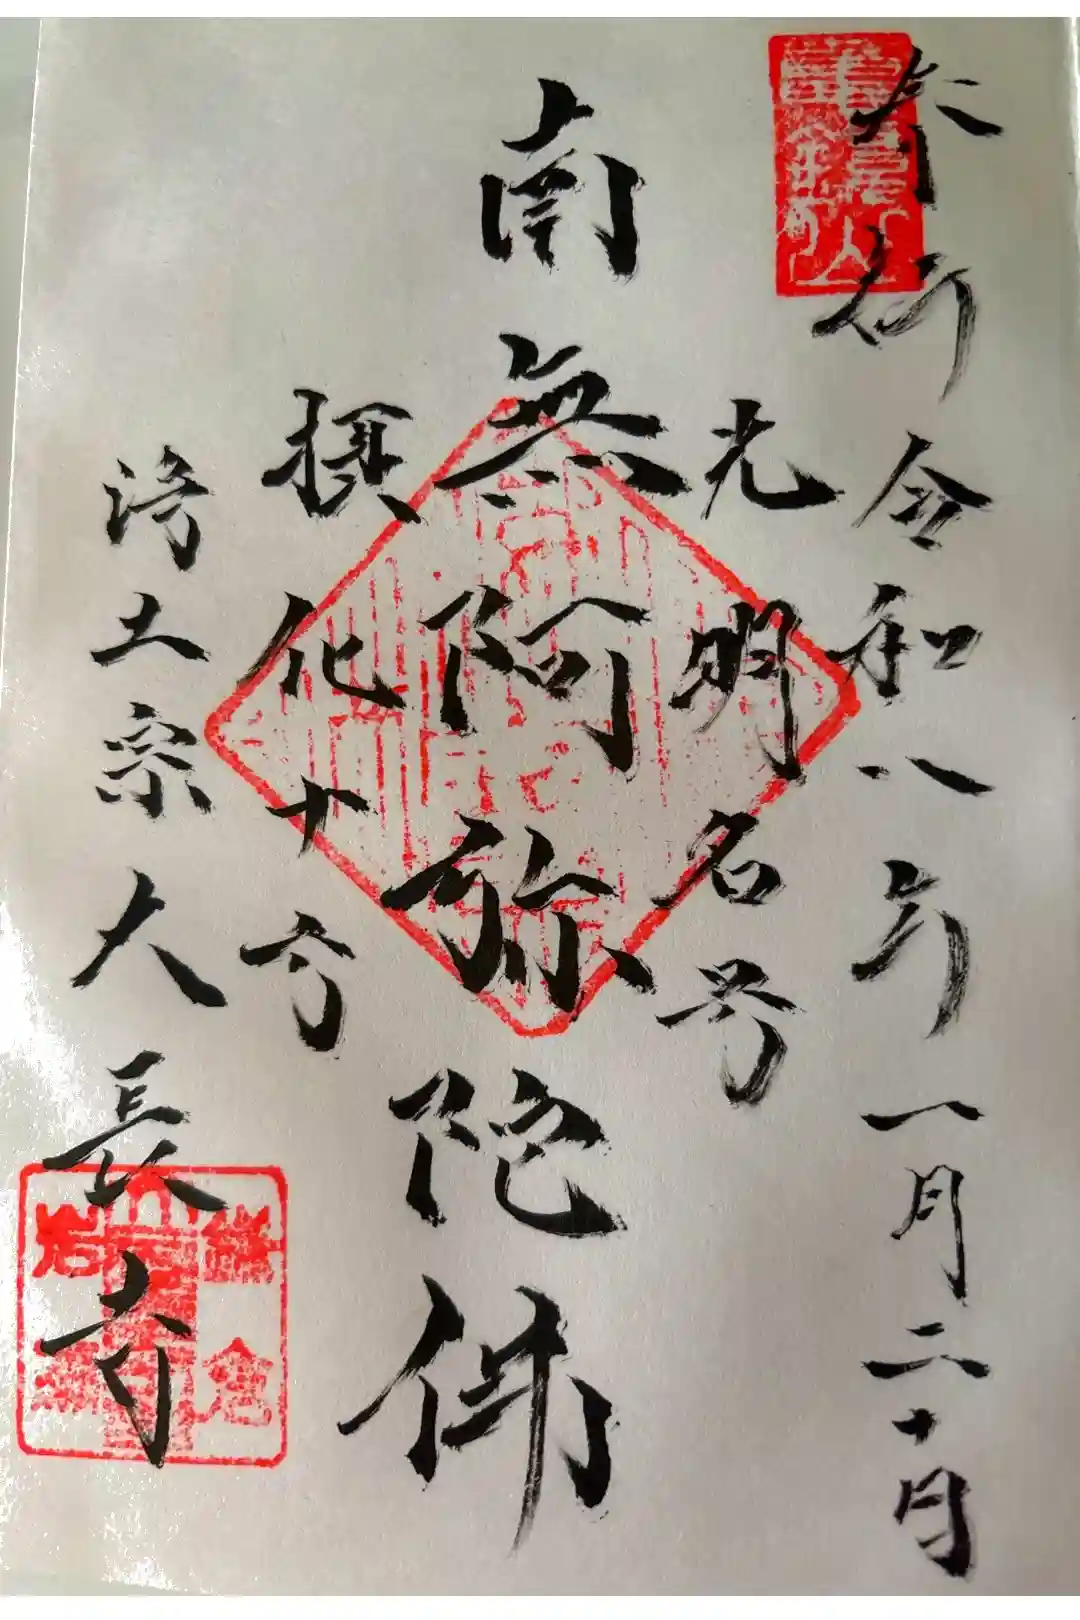 参拝 令和八年一月二十日
光明名号
南無阿弥陀佛
摂化十方
浄土宗大長寺
鎌倉
岩瀬